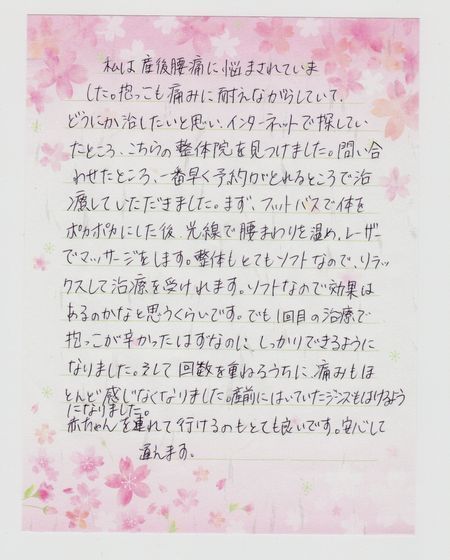 私は産後腰痛に悩まされていま
した。抱っこも痛みに耐えながらしていて、
どうにか治したいと思い、インターネットで探してい
たところ、こちらの整体院を見つけました。問い合
わせたところ、一番早く予約がとれるところで治
療していただきました。まず、フットバスで体を
ポカポカにした後、光線で腰まわりを温め、レーザー
でマッサージをします。整体もとてもソフトなので、リラッ
クスして治療を受けれます。ソフトなので効果は
あるのかなと思うくらいです。でも1回目の治療で
抱っこが辛かったはずなのに、しっかりできるように
なりました。そして回数を重ねるうちに、痛みもほ
とんど感じなくなりました。産前にはいていたジーンズもはけるよう
になりました。
赤ちゃんを連れて行けるのもとても良いです。安心して
通えます。